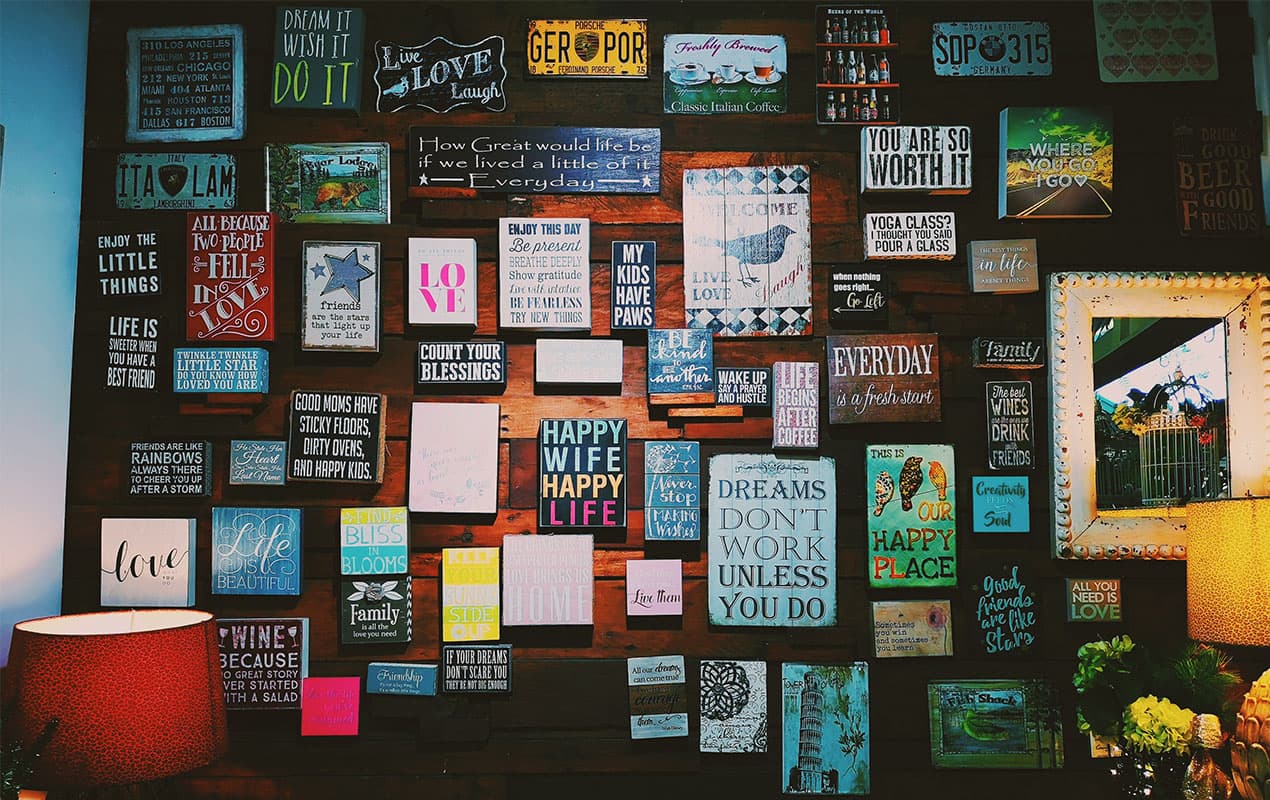 310 LOS ANGELES
PHILADELPHIA 215 DENVER
CHICAGO
212 NEW YORK
MIAMI 404 ATLANTA
HOUSTON 713
415 SAN FRANCISCO
DALLAS 617 BOSTON
DREAM IT
WISH IT
DO IT
Live
LOVE
Laugh
PORSCHE
GER POR
FERDINAND PORSCHE
Freshly Brewed
Cappuccino Espresso Caffe Latte
Classic Italian Coffee
BEERS OF THE WORLD
GUSTAN OTTO
SDP 315
GERMANY
ITALY
ITA LAM
LAMBORGHINI
Bear Lodge
How Great would life be
if we lived a little of it
Everyday
WELCOME
LIVE
LOVE
Laugh
YOU ARE SO
WORTH IT
WHERE
YOU GO
I GO
DRINK
GOOD
BEER
GOOD
FRIENDS
ENJOY THE
LITTLE
THINGS
ALL BECAUSE
TWO PEOPLE
FELL
IN
LOVE
friends
are the stars
that light up
your life
LO
VE
ENJOY THIS DAY
Be present
BREATHE DEEPLY
Show gratitude
Live with intention
BE FEARLESS
TRY NEW THINGS
MY
KIDS
HAVE
PAWS
YOGA CLASS?
I THOUGHT YOU SAID
POUR A GLASS
THE BEST THINGS
in life
AREN'T THINGS
when nothing
goes right...
Go Left
LIFE IS
SWEETER WHEN
YOU HAVE A
BEST FRIEND
TWINKLE TWINKLE
LITTLE STAR
DO YOU KNOW HOW
LOVED YOU ARE
COUNT YOUR
BLESSINGS
BE
kind to
one
another
WAKE UP
SAY A PRAYER
AND HUSTLE
LIFE
BEGINS
AFTER
COFFEE
EVERYDAY
is a fresh start
Family
The best
WINES
are the ones
we
DRINK
with
FRIENDS
GOOD MOMS HAVE
STICKY FLOORS,
DIRTY OVENS,
AND HAPPY KIDS.
FRIENDS ARE LIKE
RAINBOWS
ALWAYS THERE
TO CHEER YOU UP
AFTER A STORM
He Stole Her
Heart
So She Stole His
Last Name
HAPPY
WIFE
HAPPY
LIFE
Never
stop
MAKING
Wishes
DREAMS
DON'T
WORK
UNLESS
YOU DO
THIS IS
OUR
HAPPY
PLACE
Creativity
FEEDS THE
Soul
love
YOU DO
Life
IS
BEAUTIFUL
FIND
BLISS
IN
BLOOMS
Family
is all the
love you need
YOUR
SUNNY
SIDE
UP
LOVE BRINGS US
HOME
Live them
Sometimes
you win
and sometimes
you learn
Good
friends
are like
Stars
ALL YOU
NEED IS
LOVE
WINE
BECAUSE
NO GREAT STORY
EVER STARTED
WITH A SALAD
Friendship
IF YOUR DREAMS
DON'T SCARE YOU
THEY'RE NOT BIG ENOUGH
All our dreams
can come true
courage
them
Walt Disney
TOWER
Fish Shack